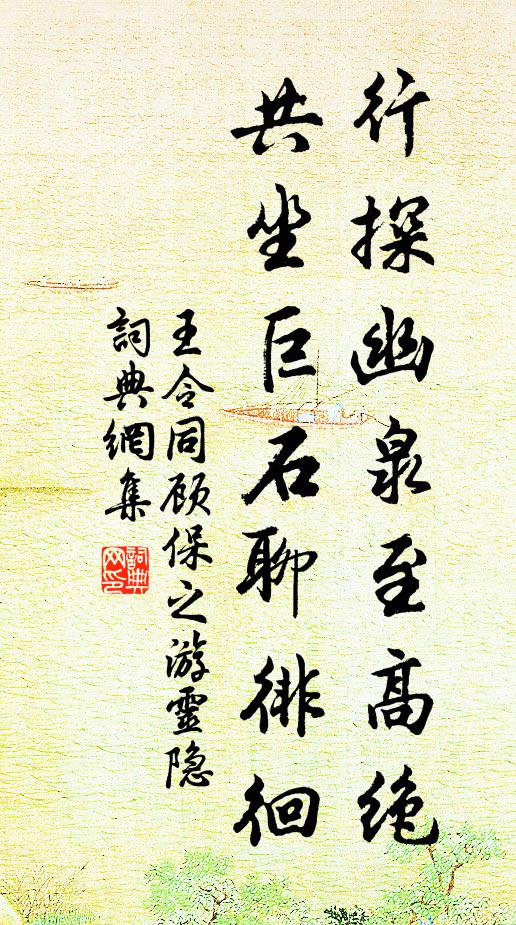 行探幽泉至高绝
共坐巨石聊徘徊
王令同顾保之游靈隐
詞典網集
詞典网印